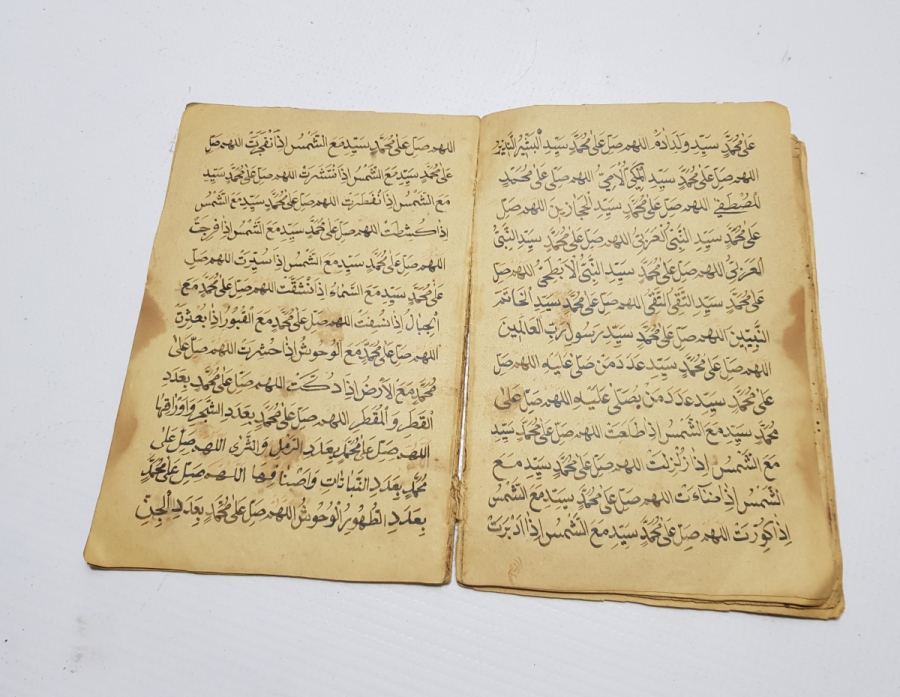 عَلٰى مُحَمَّدٍ سَيِّدِ وَلَدِاٰدَمْ اللهم صَلِّ عَلٰى مُحَمَّدٍ سَيِّدِ الْبَشِيْرُ النَّذِيْرِ
اللهم صَلِّ عَلٰى مُحَمَّدٍ سَيِّدِ الْاُمِّيِّ اللهم صَلِّ عَلٰى مُحَمَّدٍ
الْمُصْطَفٰى اللهم صَلِّ عَلٰى مُحَمَّدٍ سَيِّدِ الْحِجَازِينَ اللهم صَلِّ
عَلٰى مُحَمَّدٍ سَيِّدِ النَّبِيِّ الْعَرَبِيُّ اللهم صَلِّ عَلٰى مُحَمَّدٍ سَيِّدِ النَّبِيُّ
الْعَرَبِيُّ اللهم صَلِّ عَلٰى مُحَمَّدٍ سَيِّدِ النَّبِيُّ الْاَبْطَحِيُّ اللهم صَلِّ
عَلٰى مُحَمَّدٍ سَيِّدِ التَّقِيُّ النَّقِيُّ اللهم صَلِّ عَلٰى مُحَمَّدٍ سَيِّدِ الْخَاتَمِ
النَّبِيِّيْنَ اللهم صَلِّ عَلٰى مُحَمَّدٍ سَيِّدِ رَسُولِ رَبِّ الْعَالَمِيْنَ
اللهم صَلِّ عَلٰى مُحَمَّدٍ سَيِّدِ عَدَدَ مَنْ صَلّٰى عَلَيْهِ اللهم صَلِّ
عَلٰى مُحَمَّدٍ سَيِّدِ عَدَدَ مَنْ يُصَلِّى عَلَيْهِ اللهم صَلِّ عَلٰى
مُحَمَّدٍ سَيِّدِ مَعَ الشَّمْسُ اِذَا طَلَعَتْ اللهم صَلِّ عَلٰى مُحَمَّدٍ سَيِّدِ
مَعَ الشَّمْسُ اِذَا زُلْزِلَتْ اللهم صَلِّ عَلٰى مُحَمَّدٍ سَيِّدِ مَعَ
الشَّمْسُ اِذَا اللهم صَلِّ عَلٰى مُحَمَّدٍ سَيِّدِ مَعَ الشَّمْسُ
اِذَا كُوِّرَتْ اللهم صَلِّ عَلٰى مُحَمَّدٍ سَيِّدِ مَعَ الشَّمْسُ اِذَا اَدْبَرَتْ
اللهم صَلِّ عَلٰى مُحَمَّدٍ سَيِّدِ مَعَ الشَّمْسُ اِذَا نْفَجَرَتْ اللهم صَلِّ
عَلٰى مُحَمَّدٍ سَيِّدِ مَعَ الشَّمْسُ اِذَا نْتَشَرَتْ اللهم صَلِّ عَلٰى مُحَمَّدٍ سَيِّدِ
مَعَ الشَّمْسُ اِذَا نْفَطَرَتِ اللهم صَلِّ عَلٰى مُحَمَّدٍ سَيِّدِ مَعَ الشَّمْسُ
اِذَا كُشِطَتْ اللهم صَلِّ عَلٰى مُحَمَّدٍ سَيِّدِ مَعَ الشَّمْسُ اِذَا فُرِجَتْ
اللهم صَلِّ عَلٰى مُحَمَّدٍ سَيِّدِ مَعَ الشَّمْسُ اِذَا سُيِّرَتْ اللهم صَلِّ
عَلٰى مُحَمَّدٍ سَيِّدِ مَعَ السَّمَاءُ اِذَا نْشَقَّتْ اللهم صَلِّ عَلٰى مُحَمَّدٍ مَعَ
الْجِبَالُ اِذَا نُسِفَتْ اللهم صَلِّ عَلٰى مُحَمَّدٍ مَعَ الْقُبُورُ اِذَا بُعْثِرَتْ
اللهم صَلِّ عَلٰى مُحَمَّدٍ مَعَ الْوُحُوشُ اِذَا حُشِرَتْ اللهم صَلِّ عَلٰى
مُحَمَّدٍ مَعَ الْاَرْضُ اِذَا دُكَّتْ اللهم صَلِّ عَلٰى مُحَمَّدٍ بِعَدَدِ
الْقَطَرِ وَ الْمَطَرِ اللهم صَلِّ عَلٰى مُحَمَّدٍ بِعَدَدِ الشَّجَرِ وَاَوْرَاقِهَا
اللهم صَلِّ عَلٰى مُحَمَّدٍ بِعَدَدِ الرَّمْلِ وَالثَّرٰى اللهم صَلِّ عَلٰى
مُحَمَّدٍ بِعَدَدِ النَّبَاتَاتِ وَاَصْنَافِهَا اللهم صَلِّ عَلٰى مُحَمَّدٍ
بِعَدَدِ الطُّهُورُ الْوُحُوشُ اللهم صَلِّ عَلٰى مُحَمَّدٍ بِعَدَدِ الْجِنِّ